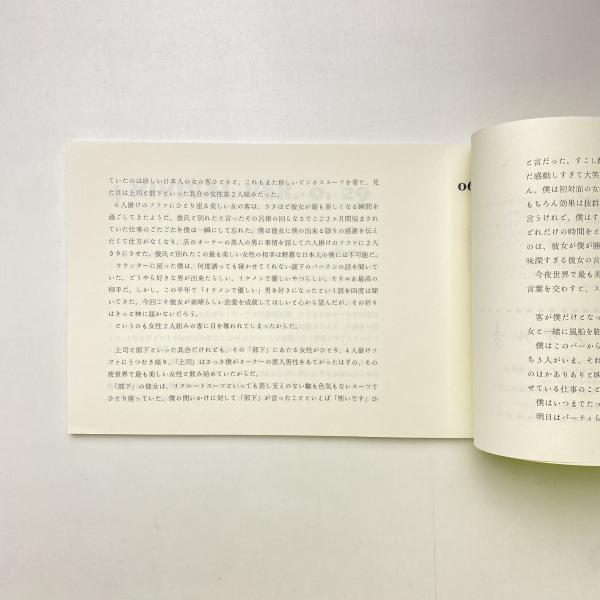 ていたのは珍しい日本人の女の客ひとりと、これもまた珍しいビジネススーツを着た、見
た目は上司と部下といった具合の女性客2人組みだった。
6人掛けのソファにひとり座る美しい女の客は、さきほど彼女が最も美しくなる瞬間を
過ごしてきたようだ。彼氏と別れたと言ったその呂律の回らなさでここ2ヶ月間悩まされ
ていた仕事のごたごたを僕は一瞬にして忘れた。僕は彼女に僕の出来る限りの感謝を伝え
たくて仕方がなくなり、店のオーナーの黒人の男に事情を話して六人掛けのソファに2人
きりにさせた。彼氏と別れたこの最も美しい女性の相手は野暮な日本人の僕には不可能だ。
カウンターに戻った僕は、何度誘っても寝かせてくれない歳下のバーテンの話を聞いて
いた。どうやら好きな男が出来たらしい。イケメンで優しいやつらしい。そりゃぁ最高の
相手だ。しかし、この半年で「イケメンで優しい」男を好きになったという話を四度は聞
いてきた。今回こそ彼女が素晴らしい恋愛を成就してほしいと心から望んだが、その祈り
はきっと神に届かないだろう。
というのも女性2人組みの客に目を奪われてしまったからだ。
上司と部下といった具合だけれども、その「部下」にあたる女性がひとり、4人掛けソ
ファにうつむき座り、「上司」はさっき僕がオーナーの黒人男性をあてがったはずの、その
夜世界で最も美しい女性と飲み始めていたからだ。
「部下」の彼女は、リクルートスーツといっても差し支えのない皺も色気もないスーツで
ひとり座っていた。僕の問いかけに対して「部下」が言ったことといえば「怖いです」ひ
と言だった。すこし
だ感動しすぎて大笑
ん。僕は初対面の女
もちろん効果は抜群
言うけれど、僕はす
どれだけの時間をと
のは、彼女が僕が勝
味深すぎる彼女の言
今夜世界で最も美
言葉を交わすと、ス
客が僕だけとなっ
女と一緒に風船を膨
僕はこのバーから
ち3人がいま、それ
のはかありありと
せている仕事のこと
僕はいつまでたっ
明日はパーティら